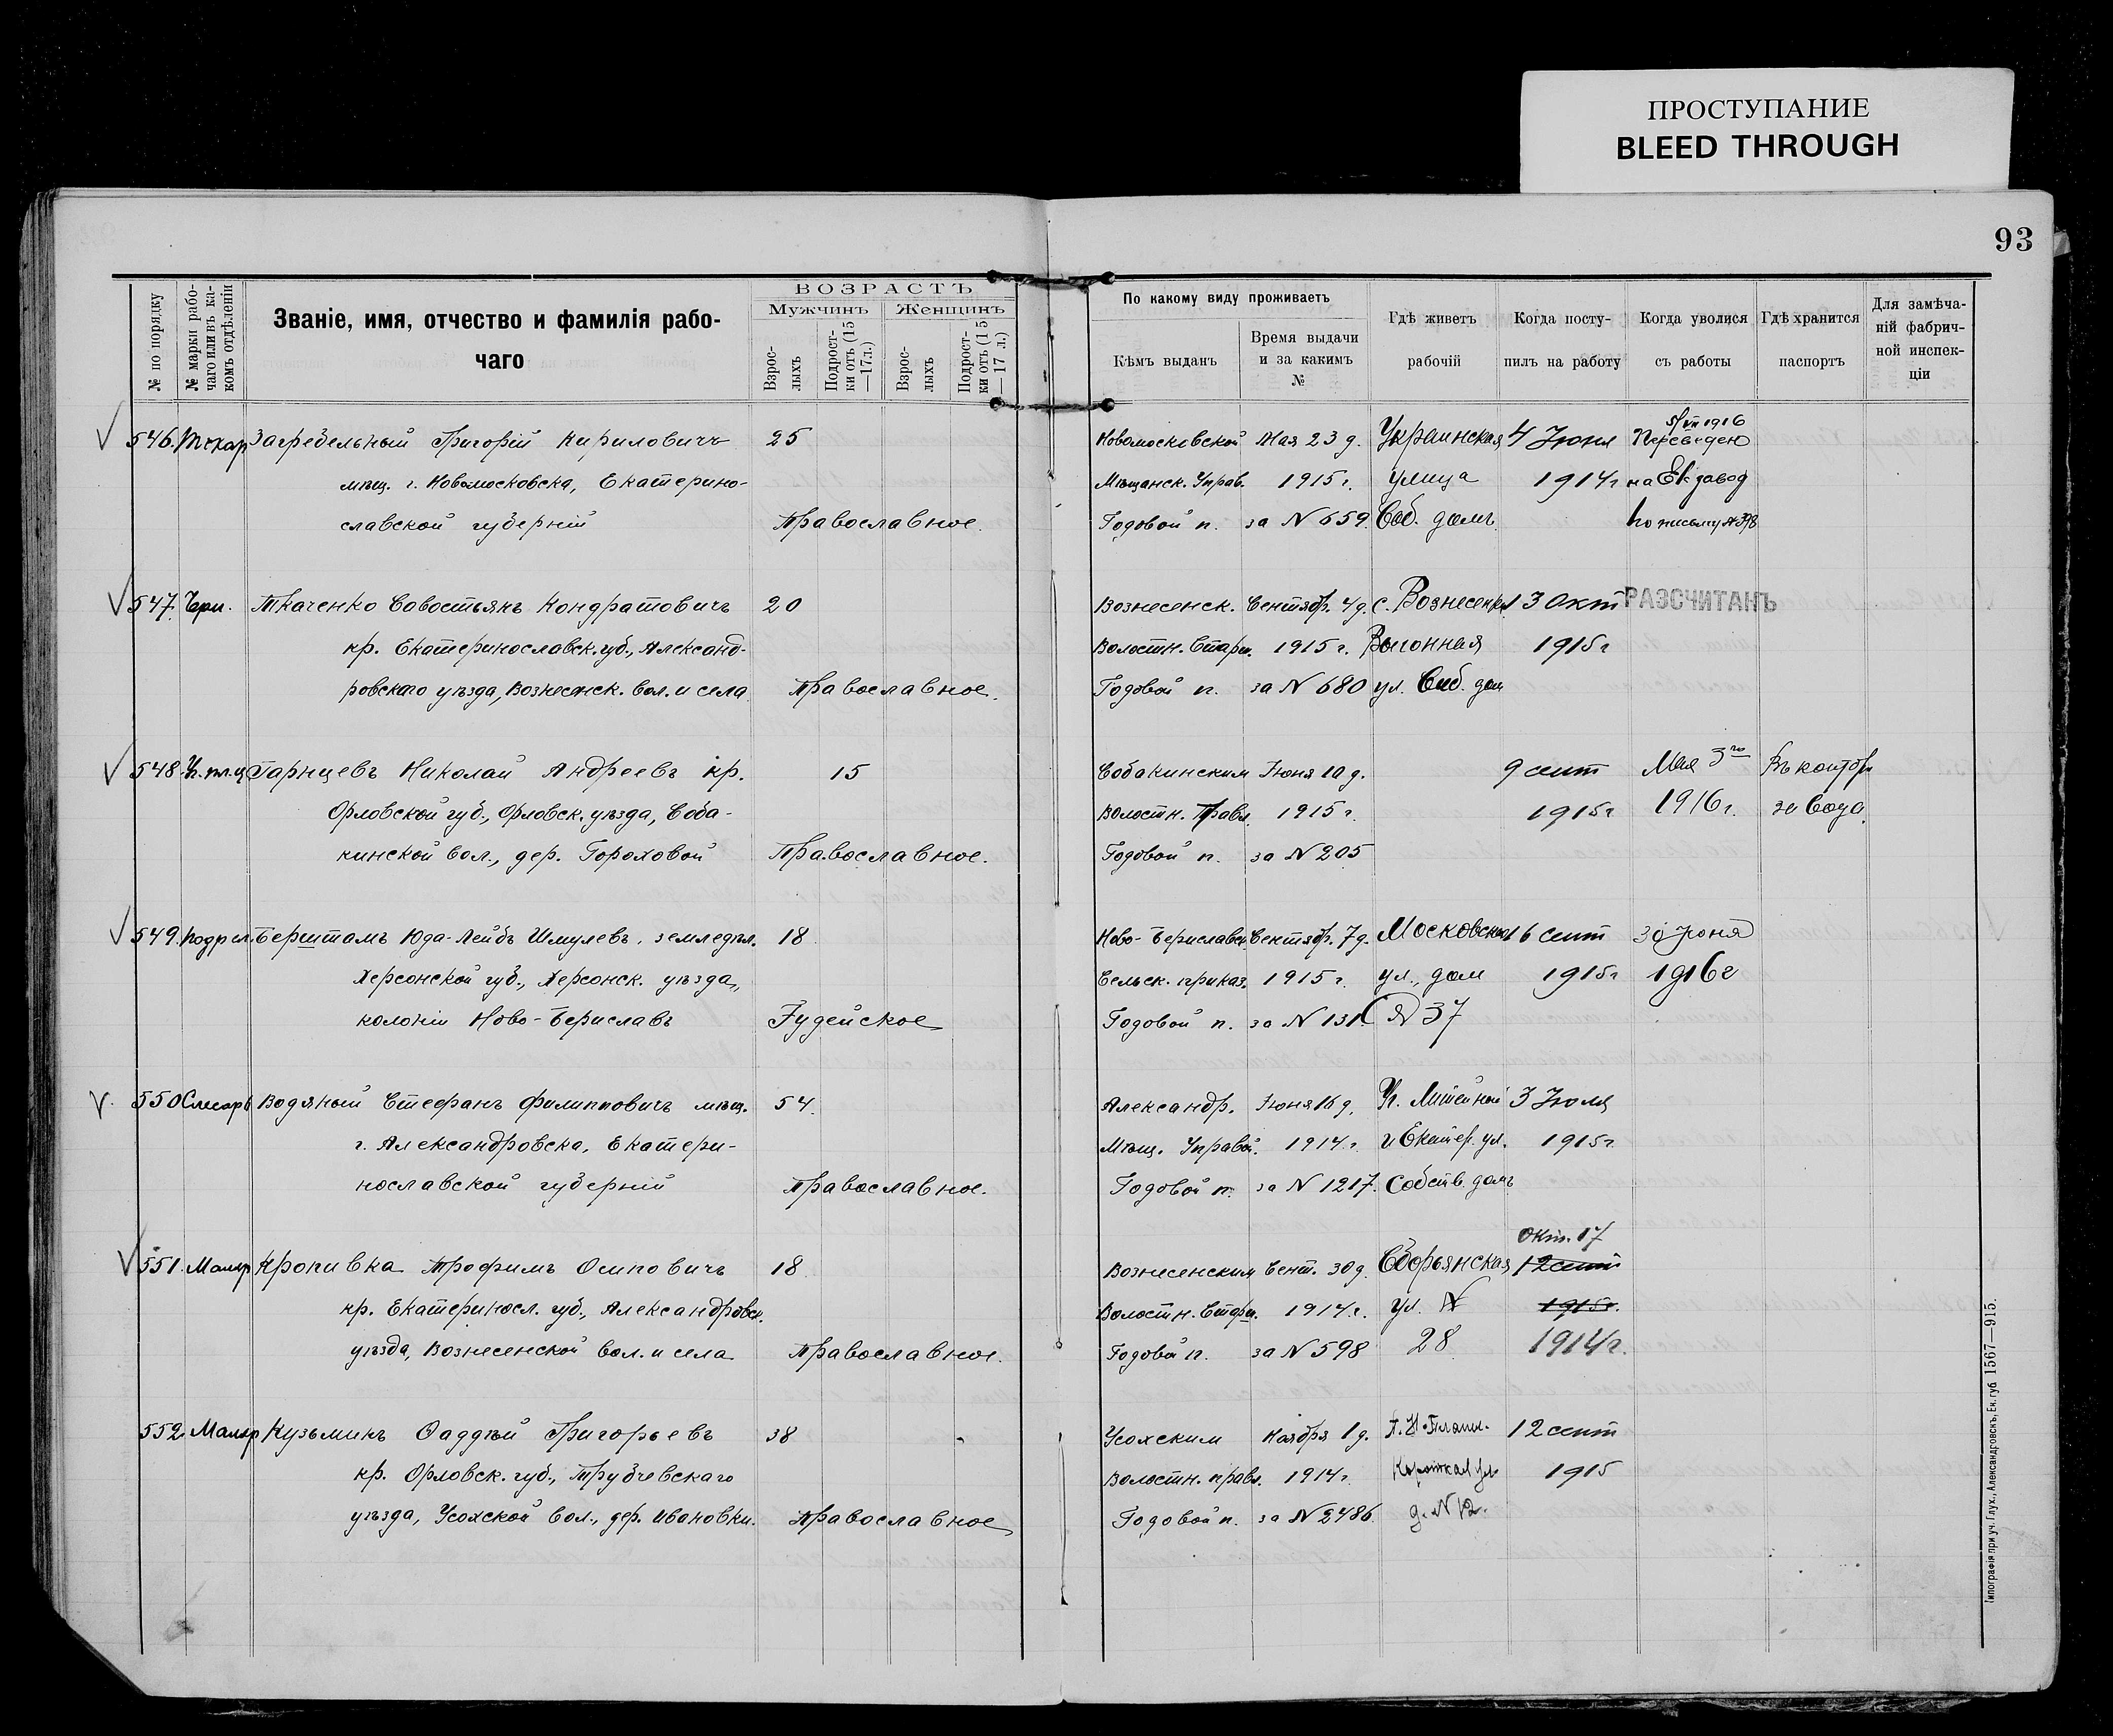 ПРОСТУПАНИЕ
BLEED THROUGH
93
№ по порядку
№ марки рабо-
чаго или въ ка-
комъ отдѣленіи
Званіе, имя, отчество и фамилія рабо-
чаго
ВОЗРАСТЪ
Мужчинъ
Женщинъ
Взрос-
лыхъ
Подрост-
ки отъ (15
—17 л.)
Взрос-
лыхъ
Подрост-
ки отъ (15
— 17 л.)
По какому виду проживаетъ
Кѣмъ выданъ
Время выдачи
и за какимъ
№
Гдѣ живетъ
рабочій
Когда посту-
пилъ на работу
Когда уволися
съ работы
Гдѣ хранится
паспортъ
Для замѣча-
ній фабрич-
ной инспек-
ціи
546. Токар Загребельный Григорій Кириловичъ 25
мѣщ. г. Новомосковска, Екатерино-
славской губерніи Православное.
Новомосковской Мая 23 д. Украинская 4 Июня 5/VII 1916 Переведен
Мѣщанск. Управ. 1915 г. улица 1914 г на Ек завод
Годовой п. за N 659. Соб. домъ. по письму № 398
547. Черн. Ткаченко Савостьянъ Кондратовичъ 20
кр. Екатеринославск. губ., Александ-
ровскаго уѣзда, Вознесенск. вол. и села Православное.
Вознесенск. Сентябр. 4 д. с. Вознесенка 13 Окт РАЗСЧИТАНЪ
Волостн. Старш. 1915 г. Выгонная 1915 г
Годовой п. за N 680 ул. Соб. дом
548. Гарнцевъ Николай Андреевъ кр. 15
Орловской губ., Орловск. уѣзда, Соба-
кинской вол., дер. Гороховой Православное.
Собакинским Июня 10 д. 9 сент Мая 3го Въ контор
Волостн. Правл. 1915 г. 1915 г 1916 г. завода
Годовой п. за N 205
549. Бернштамъ Юда-Лейбъ Шмулевъ. земледѣл. 18
Херсонской губ., Херсонск. уѣзда,
колоніи Ново-Бериславъ Іудейское
Ново-Бериславск. Сентябр. 7 д. Московская 16 сент 30 Июня
Сельск. приказ. 1915 г. ул., дом 1915 г 1916 г
Годовой п. за N 131 № 37
550 Слесарь Водяный Стефанъ Филипповичъ мѣщ. 54.
г. Александровска, Екатери-
нославской губерніи Православное.
Александр. Июня 16 д. Уг. Литейной 3 Июля
Мѣщ. Управой. 1914 г. и Екатер. ул. 1915 г.
Годовой п. за N 1217. Собств. домъ
551. Маляр Кропивка Трофимъ Осиповичъ 18
кр. Екатериносл. губ., Александровск.
уѣзда, Вознесенской вол. и села Православное.
Окт. 17
Вознесенским Сент. 30 д. 12 сент
Волостн. Старш. 1914 г. ул. № 1915 г.
Годовой п. за N 598 28 1914 г.
552. Маляр Кузьминъ Фаддѣй Григорьевъ 38
кр. Орловск. губ., Трубчевскаго
уѣзда, Усохской вол., дер. Ивановки. Православное
Усохским Ноября 1 д. 12 сент
Волостн. правл. 1914 г. 1915
Годовой п. за N 2486. д. N 12.
Типографія при уч. Глух., Александровскъ, Ек. губ 1567—915.